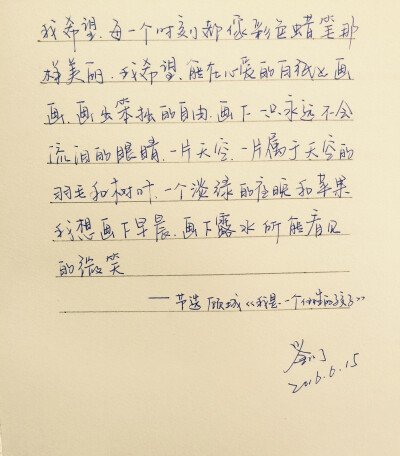 我希望，每一个时刻都像彩色蜡笔那
样美丽，我希望，能在心爱的白纸上画
画，画出笨拙的自由，画下一只永远不会
流泪的眼睛，一片天空，一片属于天空的
羽毛和树叶，一个淡绿的夜晚和苹果
我想画下早晨，画下露水所能看见
的微笑
——节选顾城《我是一个任性的孩子》
2016.6.15